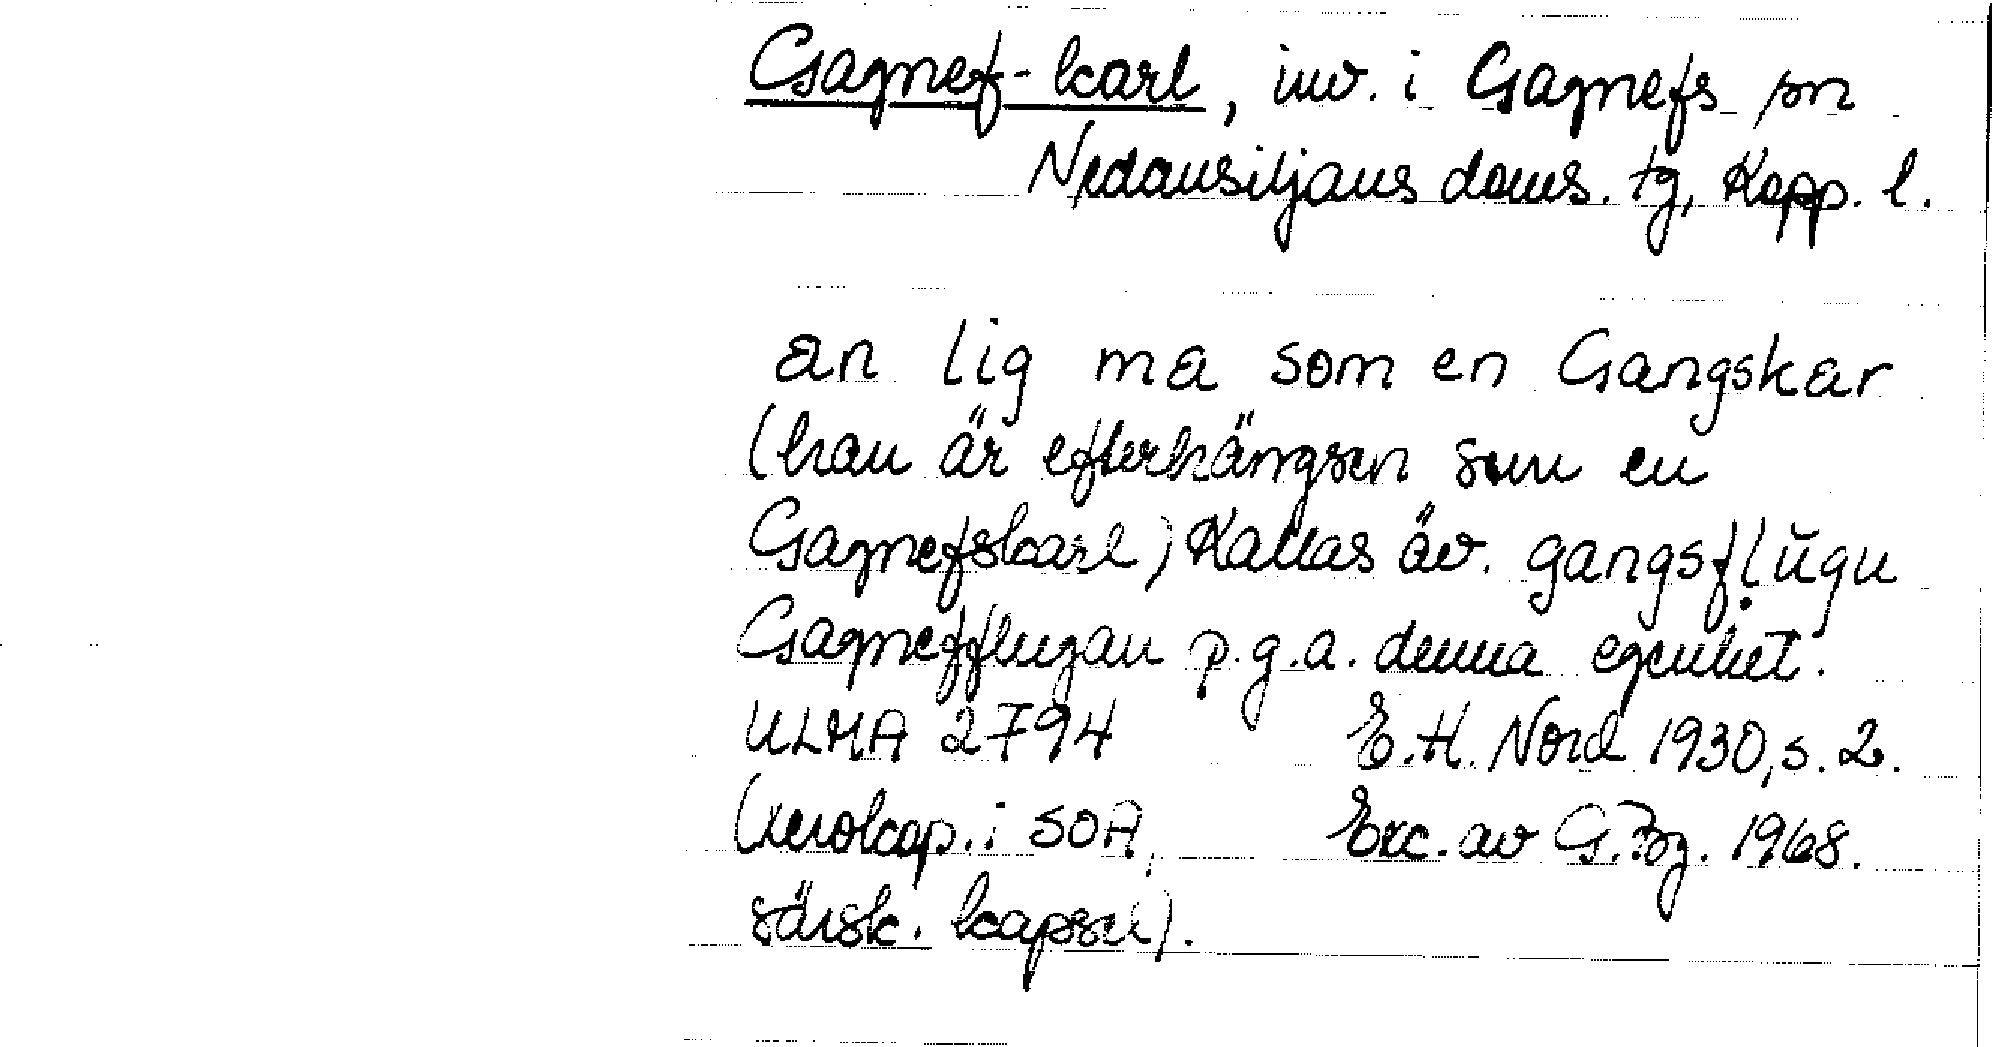 Gagnef-karl, inv. i Gagnefs sn
Nedansiljans doms. tg, Kopp. l.
an lig ma som en Gangskar
(han är efterhängsen som en
Gagnefskarl) Kallas äv. gangsflŭgu
Gagnefflugan p.g.a. denna egenhet.
ULMA 2794 E.H. Nord 1930, s. 2.
(xerokop. i SOA, Exc. av G. Bg. 1968.
särsk. kapsel).